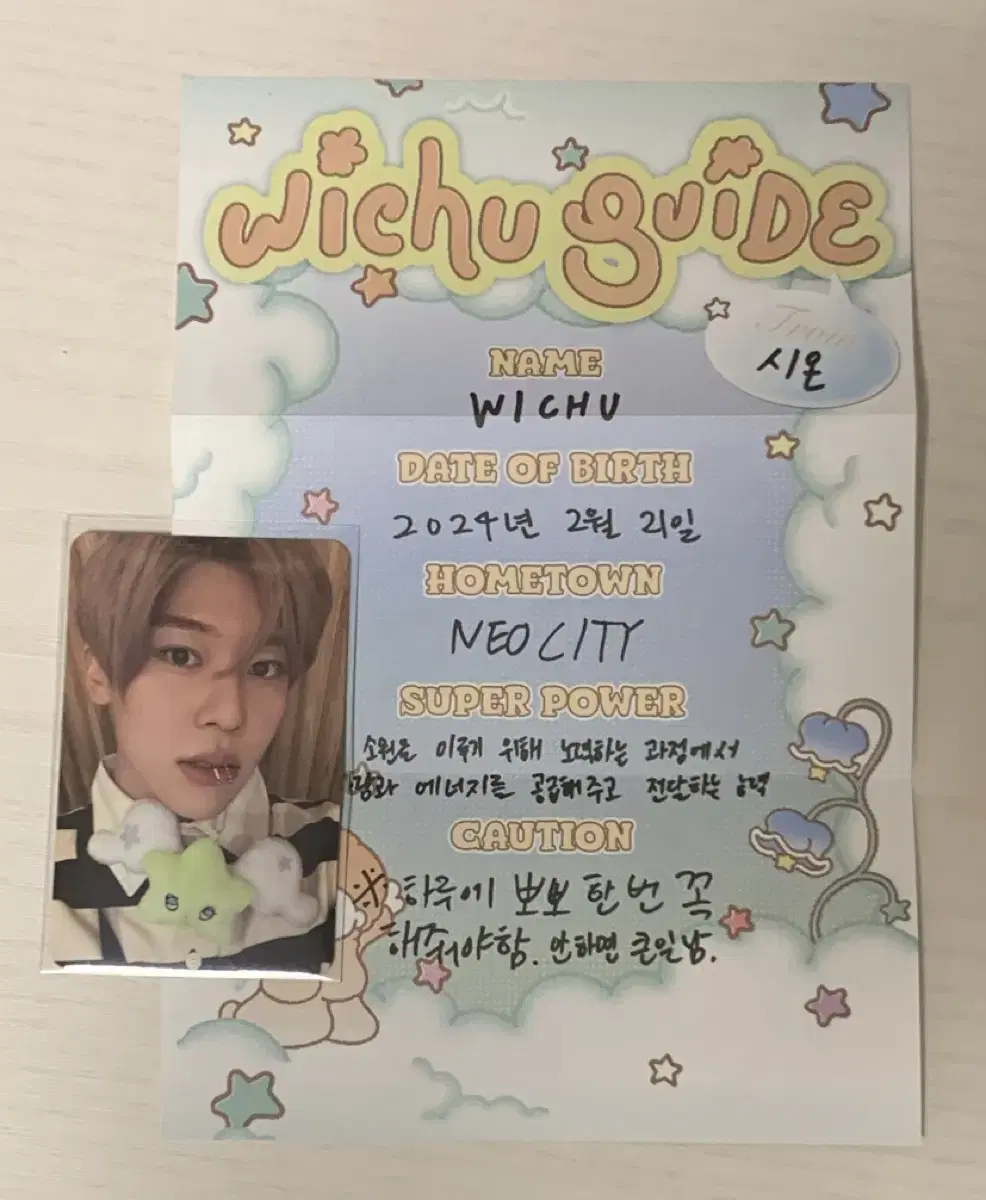 wichu guide
From
시온
NAME
WICHU
DATE OF BIRTH
2024년 2월 21일
HOMETOWN
NEO CITY
SUPER POWER
소원을 이루기 위해 노력하는 과정에서
에너지를 공급해주고 전달하는 능력
CAUTION
※ 하루에 뽀뽀 한 번 꼭
해줘야함. 안하면 큰일남.